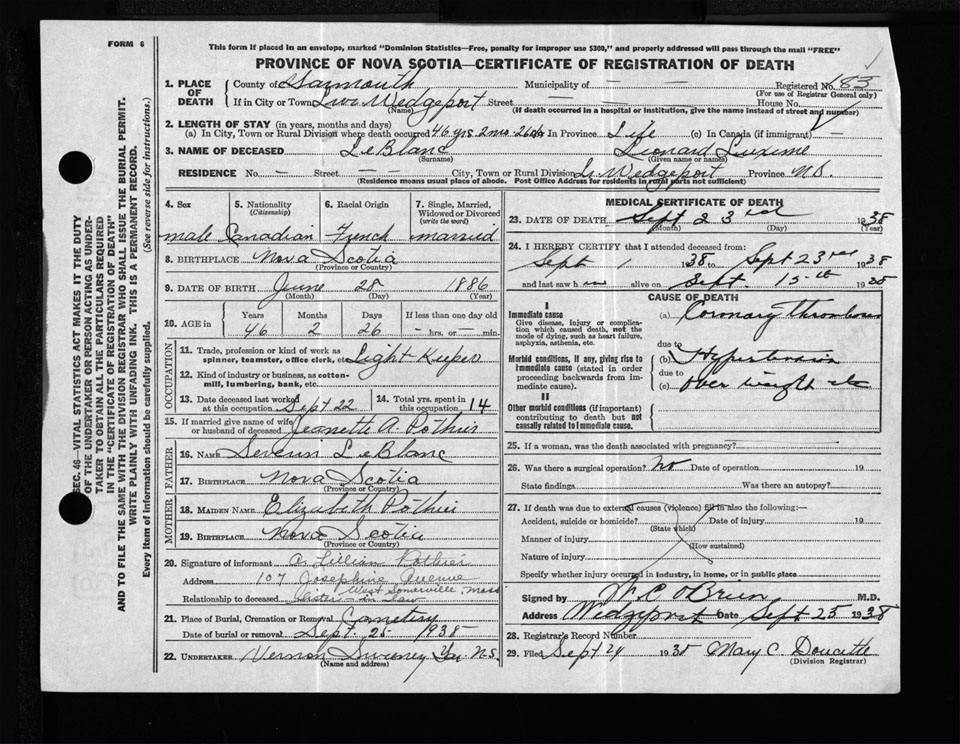 FORM 6
This form if placed in an envelope, marked "Dominion Statistics—Free, penalty for improper use $300," and properly addressed will pass through the mail "FREE"
PROVINCE OF NOVA SCOTIA—CERTIFICATE OF REGISTRATION OF DEATH
1. PLACE OF DEATH County of Yarmouth Municipality of — — Registered No. 183
(For use of Registrar General only)
If in City or Town Lwr Wedgeport Street — House No.
(Name) (If death occurred in a hospital or Institution, give the name instead of street and number)
2. LENGTH OF STAY (in years, months and days)
(a) In City, Town or Rural Division where death occurred 46 yrs 2 mo. 26 ds In Province Life (c) In Canada (if immigrant) —
3. NAME OF DECEASED LeBlanc Leonard
(Surname) (Given name or names)
RESIDENCE No. — Street — City, Town or Rural Division Lr. Wedgeport Province N.S.
(Residence means usual place of abode. Post Office Address for residents in rural parts not sufficient)
4. Sex 5. Nationality (Citizenship) 6. Racial Origin 7. Single, Married, Widowed or Divorced (write the word)
male Canadian French married
8. BIRTHPLACE Nova Scotia
(Province or Country)
9. DATE OF BIRTH June 28 1886
(Month) (Day) (Year)
10. AGE in Years Months Days If less than one day old
46 2 26 — hrs. or — min.
OCCUPATION
11. Trade, profession or kind of work as spinner, teamster, office clerk, etc. Light Keeper
12. Kind of industry or business, as cotton-mill, lumbering, bank, etc.
13. Date deceased last worked at this occupation Sept 22 14. Total yrs. spent in this occupation 14
15. If married give name of wife or husband of deceased Jeanette A. Pothier
FATHER
16. NAME Severin LeBlanc
17. BIRTHPLACE Nova Scotia
(Province or Country)
MOTHER
18. MAIDEN NAME Elizabeth Pothier
19. BIRTHPLACE Nova Scotia
(Province or Country)
20. Signature of informant A. Lillian Pothier
Address 107 Josephine Avenue
West Somerville, Mass
Relationship to deceased Sister-in-law
21. Place of Burial, Cremation or Removal Cemetery
Date of burial or removal Sept. 25 1938
22. UNDERTAKER Vernon Sweeney Yar. N.S.
(Name and address)
MEDICAL CERTIFICATE OF DEATH
23. DATE OF DEATH Sept 23rd 1938
(Month) (Day) (Year)
24. I HEREBY CERTIFY that I attended deceased from:
Sept 1 1938 to Sept 23rd 1938
and last saw him alive on Sept. 15th 1938
CAUSE OF DEATH
I
Immediate cause (a) Coronary thrombosis
Give disease, injury or complication which caused death, not the mode of dying, such as heart failure, asphyxia, asthenia, etc.
due to
Morbid conditions, if any, giving rise to immediate cause (stated in order proceeding backwards from immediate cause). (b) Hypertension
due to
(c) over weight etc
II
Other morbid conditions (if important) contributing to death but not causally related to immediate cause.
25. If a woman, was the death associated with pregnancy?
26. Was there a surgical operation? no Date of operation 19
State findings Was there an autopsy?
27. If death was due to external causes (violence) fill in also the following:—
Accident, suicide or homicide? Date of injury 19
(State which)
Manner of injury
(How sustained)
Nature of injury
Specify whether injury occurred in industry, in home, or in public place
Signed by W. C. O'Brien M.D.
Address Wedgeport Date Sept 25 1938
28. Registrar's Record Number
29. Filed Sept 24 1938 Mary C. Doucette
(Division Registrar)
SEC. 46—VITAL STATISTICS ACT MAKES IT THE DUTY OF THE UNDERTAKER OR PERSON ACTING AS UNDERTAKER TO OBTAIN ALL THE PARTICULARS REQUIRED IN THE "CERTIFICATE OF REGISTRATION OF DEATH"
AND TO FILE THE SAME WITH THE DIVISION REGISTRAR WHO SHALL ISSUE THE BURIAL PERMIT.
WRITE PLAINLY WITH UNFADING INK. THIS IS A PERMANENT RECORD.
Every item of information should be carefully supplied. (See reverse side for instructions.)